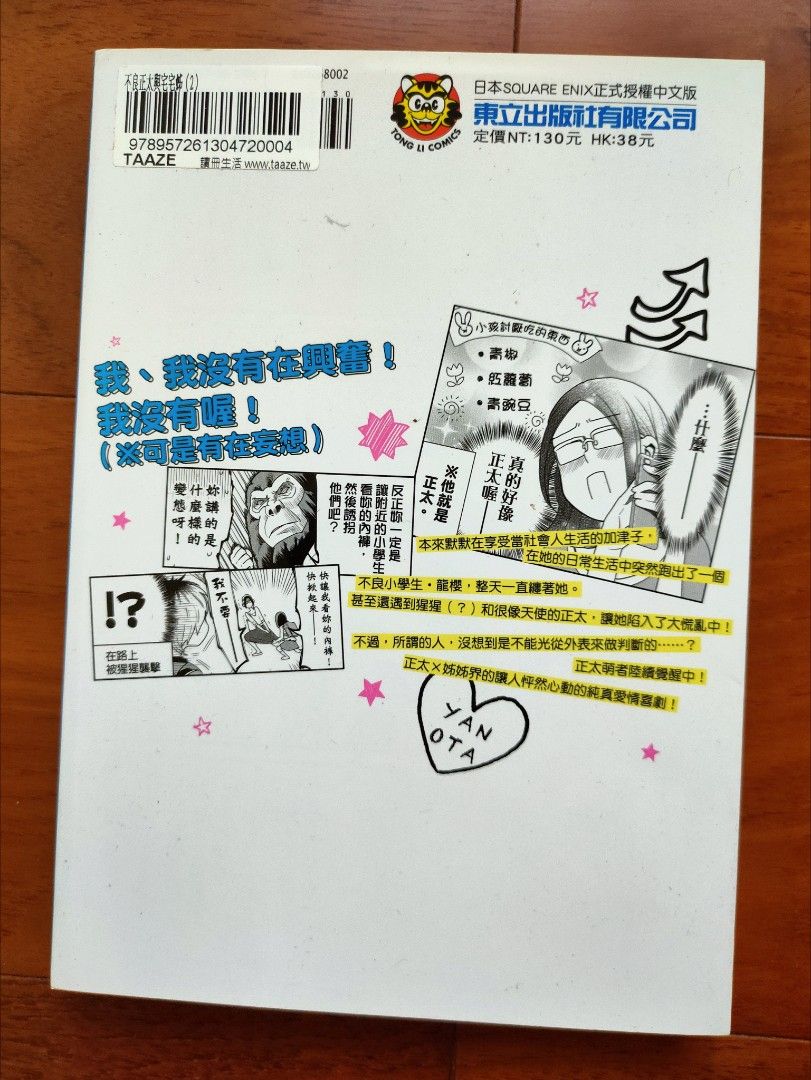 不良正太與宅宅姊(2)
8002
130
978957261304720004
TAAZE 讀冊生活 www.taaze.tw
TONG LI COMICS
日本SQUARE ENIX正式授權中文版
東立出版社有限公司
定價NT:130元 HK:38元
我、我沒有在興奮！
我沒有喔！
(※可是有在妄想)
小孩討厭吃的東西
•青椒
•紅蘿蔔
•青豌豆
…什麼——
真的好像
正太喔——
※他就是
正太。
反正妳一定是
讓附近的小學生
看妳的內褲，
然後誘拐
他們吧？
妳講的是
什麼樣的
變態呀！
快讓我看妳的內褲！
快掀起來——！
我不要
!?
在路上
被猩猩襲擊
本來默默在享受當社會人生活的加津子，
在她的日常生活中突然跑出了一個
不良小學生・龍櫻，整天一直纏著她。
甚至還遇到猩猩（？）和很像天使的正太，讓她陷入了大慌亂中！
不過，所謂的人，沒想到是不能光從外表來做判斷的……？
正太萌者陸續覺醒中！
正太×姊姊界的讓人怦然心動的純真愛情喜劇！
YAN
OTA